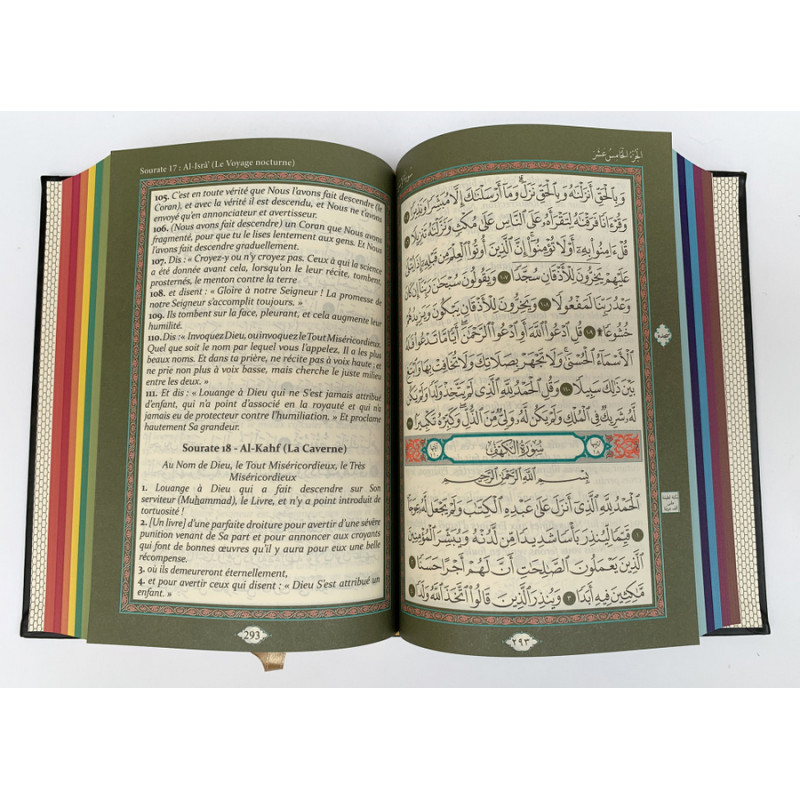 Sourate 17 : Al-Isrâ’ (Le Voyage nocturne)
105. C'est en toute vérité que Nous l'avons fait descendre (le
Coran), et avec la vérité il est descendu, et Nous ne t'avons
envoyé qu'en annonciateur et avertisseur.
106. (Nous avons fait descendre) un Coran que Nous avons
fragmenté, pour que tu le lises lentement aux gens. Et Nous
l'avons fait descendre graduellement.
107. Dis : « Croyez-y ou n'y croyez pas. Ceux à qui la science
a été donnée avant cela, lorsqu'on le leur récite, tombent,
prosternés, le menton contre la terre
108. et disent : « Gloire à notre Seigneur ! La promesse de
notre Seigneur s'accomplit toujours. »
109. Ils tombent sur la face, pleurant, et cela augmente leur
humilité.
110. Dis : « Invoquez Dieu, ou invoquez le Tout Miséricordieux.
Quel que soit le nom par lequel vous l'appelez, Il a les plus
beaux noms. Et dans ta prière, ne récite pas à voix haute ; et
ne prie pas non plus à voix basse, mais cherche le juste milieu
entre les deux. »
111. Et dis : « Louange à Dieu qui ne S'est jamais attribué
d'enfant, qui n'a point d'associé en la royauté et qui n'a
jamais eu de protecteur contre l'humiliation ». Et proclame
hautement Sa grandeur.
Sourate 18 - Al-Kahf (La Caverne)
Au Nom de Dieu, le Tout Miséricordieux, le Très
Miséricordieux
1. Louange à Dieu qui a fait descendre sur Son
serviteur (Muhammad), le Livre, et n'y a point introduit de
tortuosité !
2. [Un livre] d'une parfaite droiture pour avertir d'une sévère
punition venant de Sa part et pour annoncer aux croyants
qui font de bonnes œuvres qu'il y aura pour eux une belle
récompense.
3. où ils demeureront éternellement,
4. et pour avertir ceux qui disent : « Dieu S'est attribué un
enfant. »
293
الجزء الخامس عشر
وَبِالْحَقِّ أَنزَلْنَٰهُ وَبِالْحَقِّ نَزَلَ وَمَا أَرْسَلْنَٰكَ إِلَّا مُبَشِّرًا وَنَذِيرًا ١٠٥
وَقُرْءَانًا فَرَقْنَٰهُ لِتَقْرَأَهُ عَلَى النَّاسِ عَلَىٰ مُكْثٍ وَنَزَّلْنَٰهُ تَنزِيلًا ١٠٦
قُلْ ءَامِنُوا بِهِ أَوْ لَا تُؤْمِنُوا إِنَّ الَّذِينَ أُوتُوا الْعِلْمَ مِن قَبْلِهِ إِذَا يُتْلَىٰ
عَلَيْهِمْ يَخِرُّونَ لِلْأَذْقَانِ سُجَّدًا ١٠٧ وَيَقُولُونَ سُبْحَٰنَ رَبِّنَا إِن كَانَ
وَعْدُ رَبِّنَا لَمَفْعُولًا ١٠٨ وَيَخِرُّونَ لِلْأَذْقَانِ يَبْكُونَ وَيَزِيدُهُمْ
خُشُوعًا ۩ ١٠٩ قُلِ ادْعُوا اللَّهَ أَوِ ادْعُوا الرَّحْمَٰنَ أَيًّا مَّا تَدْعُوا فَلَهُ
الْأَسْمَاءُ الْحُسْنَىٰ وَلَا تَجْهَرْ بِصَلَاتِكَ وَلَا تُخَافِتْ بِهَا وَابْتَغِ
بَيْنَ ذَٰلِكَ سَبِيلًا ١١٠ وَقُلِ الْحَمْدُ لِلَّهِ الَّذِي لَمْ يَتَّخِذْ وَلَدًا وَلَمْ يَكُن
لَّهُ شَرِيكٌ فِي الْمُلْكِ وَلَمْ يَكُن لَّهُ وَلِيٌّ مِّنَ الذُّلِّ وَكَبِّرْهُ تَكْبِيرًا ١١١
سُورَةُ الْكَهْفِ
بِسْمِ اللَّهِ الرَّحْمَٰنِ الرَّحِيمِ
الْحَمْدُ لِلَّهِ الَّذِي أَنزَلَ عَلَىٰ عَبْدِهِ الْكِتَٰبَ وَلَمْ يَجْعَل لَّهُ عِوَجًا ١
قَيِّمًا لِّيُنذِرَ بَأْسًا شَدِيدًا مِّن لَّدُنْهُ وَيُبَشِّرَ الْمُؤْمِنِينَ
الَّذِينَ يَعْمَلُونَ الصَّٰلِحَٰتِ أَنَّ لَهُمْ أَجْرًا حَسَنًا ٢
مَّٰكِثِينَ فِيهِ أَبَدًا ٣ وَيُنذِرَ الَّذِينَ قَالُوا اتَّخَذَ اللَّهُ وَلَدًا ٤
٢٩٣